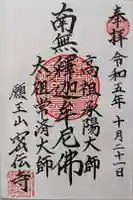 奉拝 令和五年十月二十一日
高祖承陽大師
南無釋迦牟尼佛
太祖常済大師
願王山 密伝寺